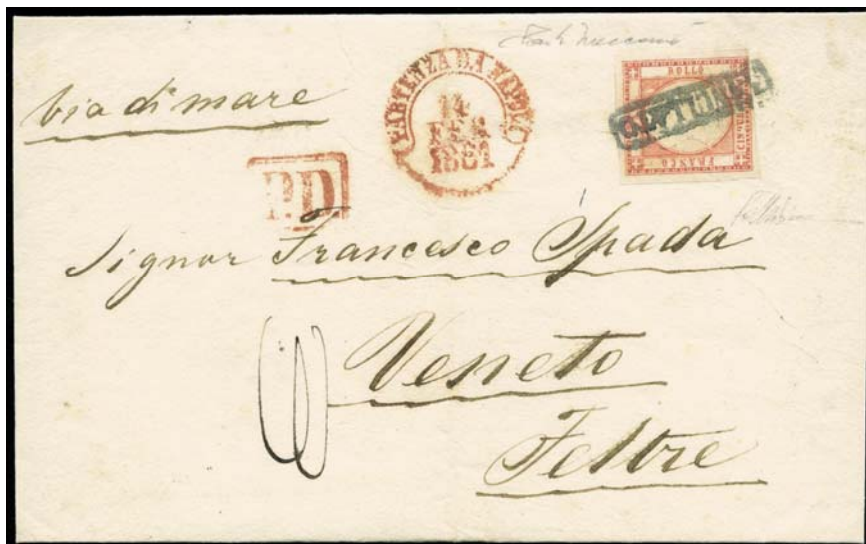 Via di mare
PARTENZA DA NAPOLI
14
FEB
1861
BOLLO
FRANCO
P.D
Signor Francesco Spada
Veneto
Feltre